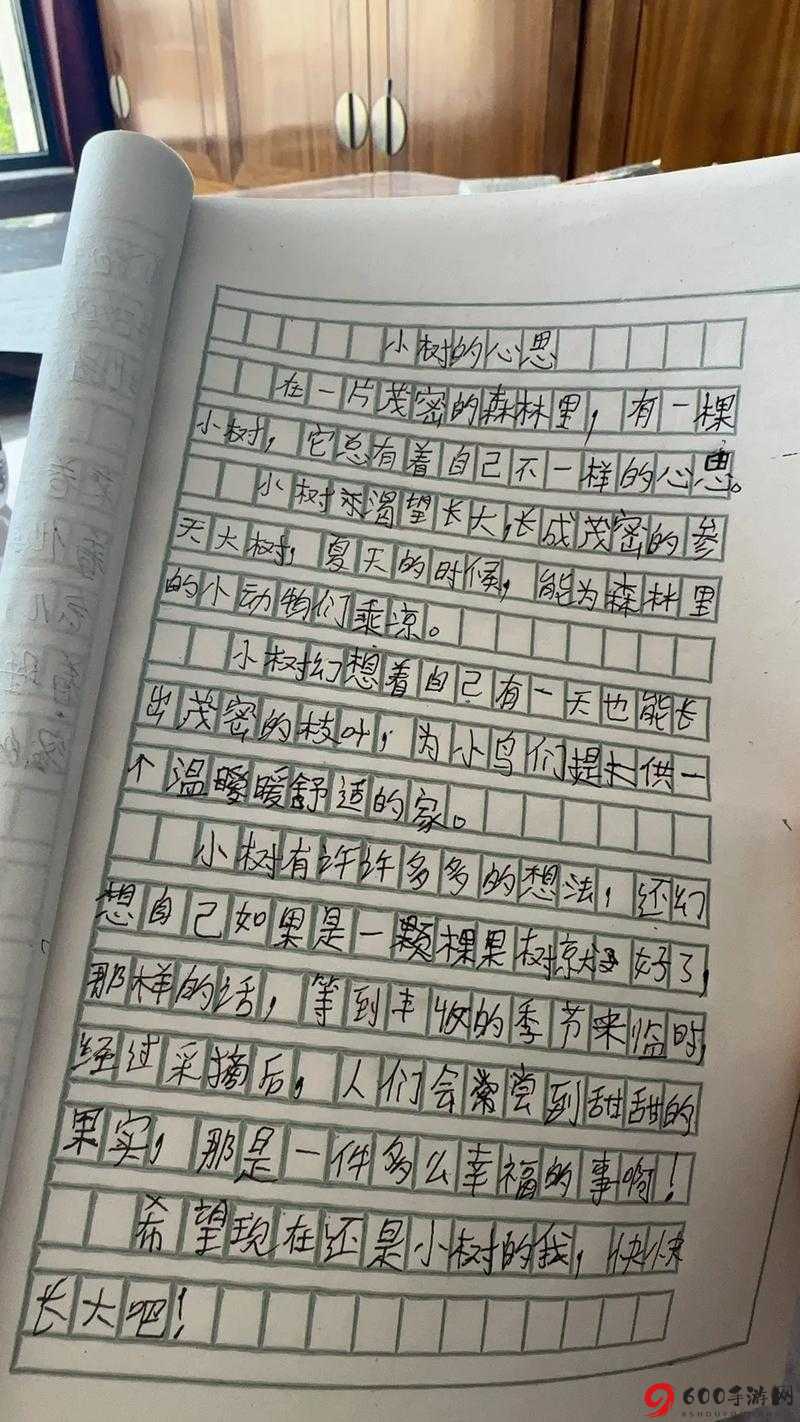 小树的心思
在一片茂密的森林里，有一棵
小树，它总有着自己不一样的心思。
小树渴望长大，长成茂密的参
天大树，夏天的时候，能为森林里
的小动物们乘凉。
小树幻想着自己有一天也能长
出茂密的枝叶，为小鸟们提供一
个温暖暖舒适的家。
小树有许许多多的想法，还幻
想自己如果是一颗棵果树就好了，
那样的话，等到丰收的季节来临时，
经过采摘后，人们会常尝到甜甜的
果实，那是一件多么幸福的事啊！
希望现在还是小树的我，快快
长大吧！
600手游网